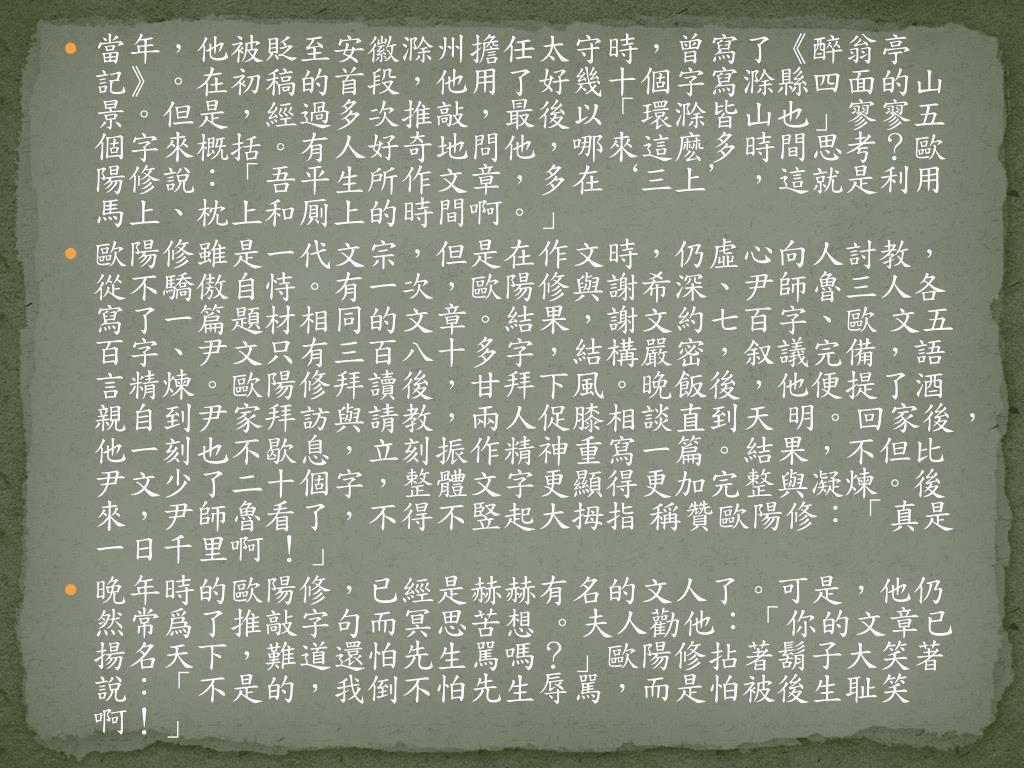 • 當年，他被貶至安徽滁州擔任太守時，曾寫了《醉翁亭
記》。在初稿的首段，他用了好幾十個字寫滁縣四面的山
景。但是，經過多次推敲，最後以「環滁皆山也」寥寥五
個字來概括。有人好奇地問他，哪來這麼多時間思考？歐
陽修說：「吾平生所作文章，多在‘三上’，這就是利用
馬上、枕上和厠上的時間啊。」
• 歐陽修雖是一代文宗，但是在作文時，仍虛心向人討教，
從不驕傲自恃。有一次，歐陽修與謝希深、尹師魯三人各
寫了一篇題材相同的文章。結果，謝文約七百字、歐 文五
百字、尹文只有三百八十多字，結構嚴密，叙議完備，語
言精煉。歐陽修拜讀後，甘拜下風。晚飯後，他便提了酒
親自到尹家拜訪與請教，兩人促膝相談直到天 明。回家後，
他一刻也不歇息，立刻振作精神重寫一篇。結果，不但比
尹文少了二十個字，整體文字更顯得更加完整與凝煉。後
來，尹師魯看了，不得不竪起大拇指 稱贊歐陽修：「真是
一日千里啊！」
• 晚年時的歐陽修，已經是赫赫有名的文人了。可是，他仍
然常爲了推敲字句而冥思苦想 。夫人勸他：「你的文章已
揚名天下，難道還怕先生罵嗎？」歐陽修拈著鬍子大笑著
說：「不是的，我倒不怕先生辱罵，而是怕被後生耻笑
啊！」